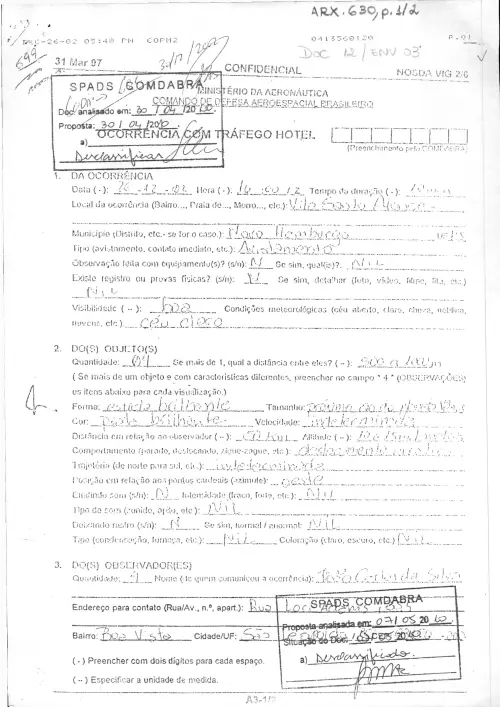 ARX.630, p.1/2
DEC-26-02 05:40 PM COPM2 0413560120 P.01
DOC 12 / ENV 03
699
30/12/2002
31 Mar 97 CONFIDENCIAL NOSDA VIG 2/6
SPADS COMDABRA
MINISTÉRIO DA AERONÁUTICA
COMANDO DE DEFESA AEROESPACIAL BRASILEIRO
Doc analisado em: 30 / 04 /20
Proposta: 30 / 04 /20
a) Desclassificar
OCORRÊNCIA COM TRÁFEGO HOTEL
(Preenchimento pelo COMDABRA)
1. DA OCORRÊNCIA
Data ( - ): 26-12-02 Hora ( - ): Tempo de duração ( - ):
Local da ocorrência (Bairro..., Praia de..., Morro..., etc.): Vila Santo
Município (Distrito, etc.- se for o caso.): Novo Hamburgo
Tipo (avistamento, contato imediato, etc.): Avistamento
Observação feita com equipamento(s)? (s/n): N Se sim, qual(is)?: NIL
Existe registro ou provas físicas? (s/n): N Se sim, detalhar (foto, vídeo, filme, fita, etc.)
NIL
Visibilidade ( -- ): boa Condições meteorológicas (céu aberto, claro, chuva, neblina,
nuvens, etc.) céu claro
2. DO(S) OBJETO(S)
Quantidade: 04 Se mais de 1, qual a distância entre eles? ( -- ): 500 a
( Se mais de um objeto e com características diferentes, preencher no campo " 4 " (OBSERVAÇÕES)
os itens abaixo para cada visualização.)
Forma: estrela brilhante Tamanho:
Cor: prata brilhante Velocidade: indeterminada
Distância em relação ao observador ( -- ): Altitude ( -- ):
Comportamento (parado, deslocando, zigue-zague, etc.): deslocamento
Trajetória (de norte para sul, etc.): indeterminada
Posição em relação aos pontos cardeais (azimute): oeste
Emitindo som (s/n): N Intensidade (fraco, forte, etc.): NIL
Tipo de som (zunido, apito, etc.): NIL
Deixando rastro (s/n): N Se sim, normal / anormal: NIL
Tipo (condensação, fumaça, etc.): NIL Coloração (claro, escuro, etc.) NIL
3. DO(S) OBSERVADOR(ES)
Quantidade: Nome (de quem comunicou a ocorrência): João Carlos da Silva
Endereço para contato (Rua/Av., n.º, apart.): Rua
SPADS COMDABRA
Proposta analisada em: 07 / 05 20
Bairro: Boa Vista Cidade/UF: São
Situação do Doc: 20
a) Desclassificado
( - ) Preencher com dois dígitos para cada espaço.
( -- ) Especificar a unidade de medida.
A3-1/2